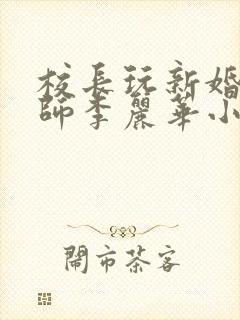 校長玩新婚
師李麗華小
鬧市茶客